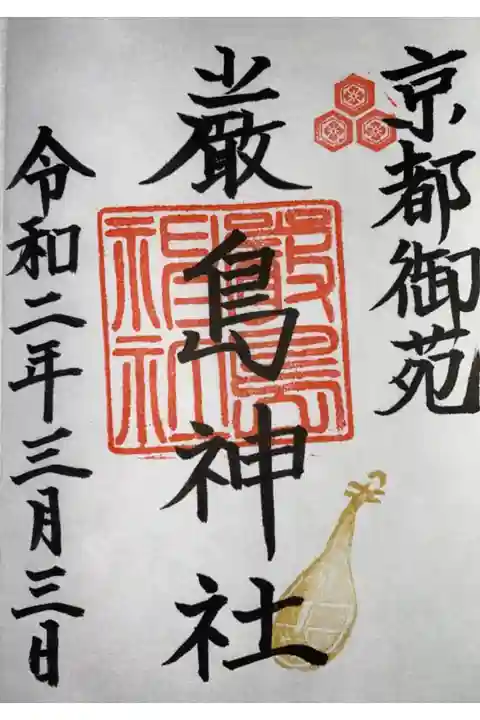 京都御苑
厳島神社
嚴島神社
令和二年三月三日